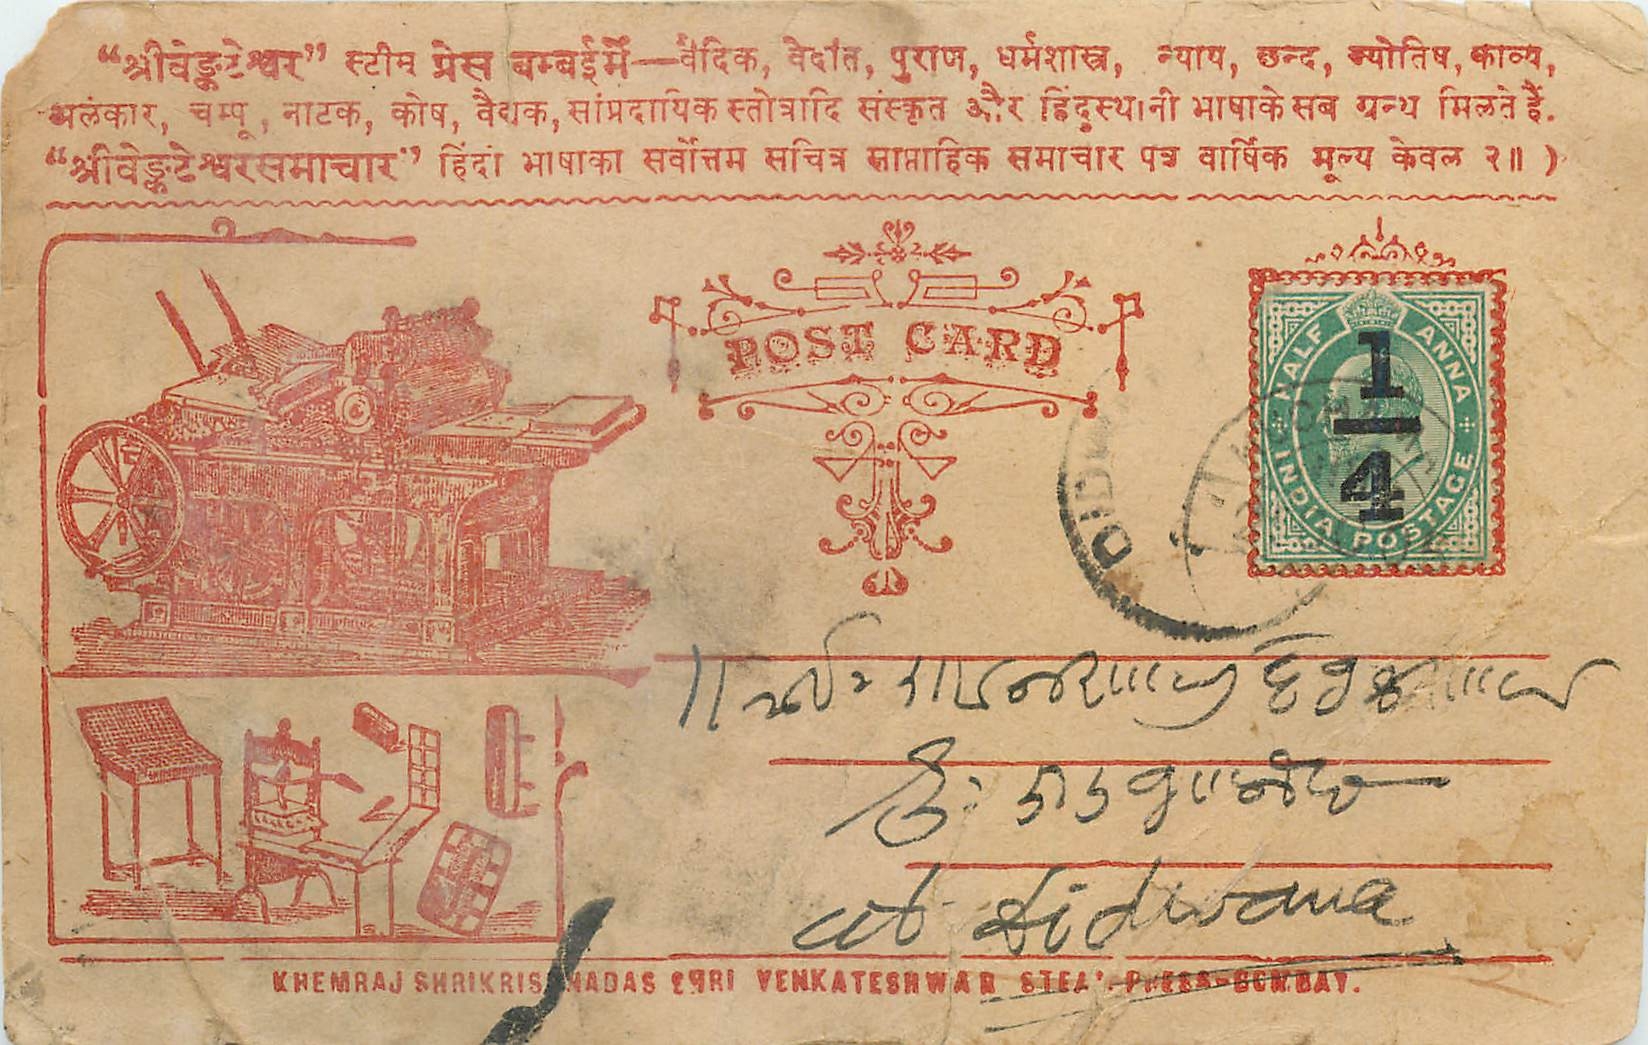 “श्रीवेङ्कटेश्वर” स्टीम् प्रेस बम्बईमें—वैदिक, वेदांत, पुराण, धर्मशास्त्र, न्याय, छन्द, ज्योतिष, काव्य,
अलंकार, चम्पू, नाटक, कोष, वैद्यक, सांप्रदायिक स्तोत्रादि संस्कृत और हिंदुस्थानी भाषाके सब ग्रन्थ मिलते हैं.
“श्रीवेङ्कटेश्वरसमाचार” हिंदी भाषाका सर्वोत्तम सचित्र साप्ताहिक समाचार पत्र वार्षिक मूल्य केवल २॥)
POST CARD
HALF ANNA
1/4
INDIA POSTAGE
DIDW
at Didwana
KHEMRAJ SHRIKRISHNADAS SHRI VENKATESHWAR STEAM PRESS-BOMBAY.